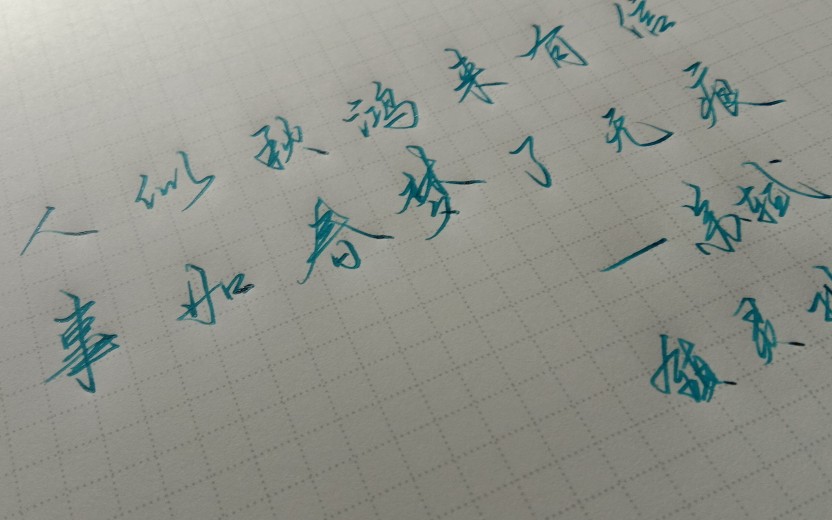 人似秋鸿来有信
事如春梦了无痕
一苏轼